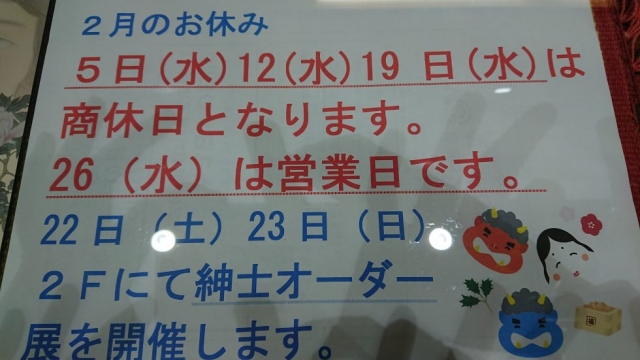 ２月のお休み
５日(水)12(水)19 日(水)は
商休日となります。
26（水）は営業日です。
22日（土）23日（日）
２Ｆにて紳士オーダー
展を開催します。